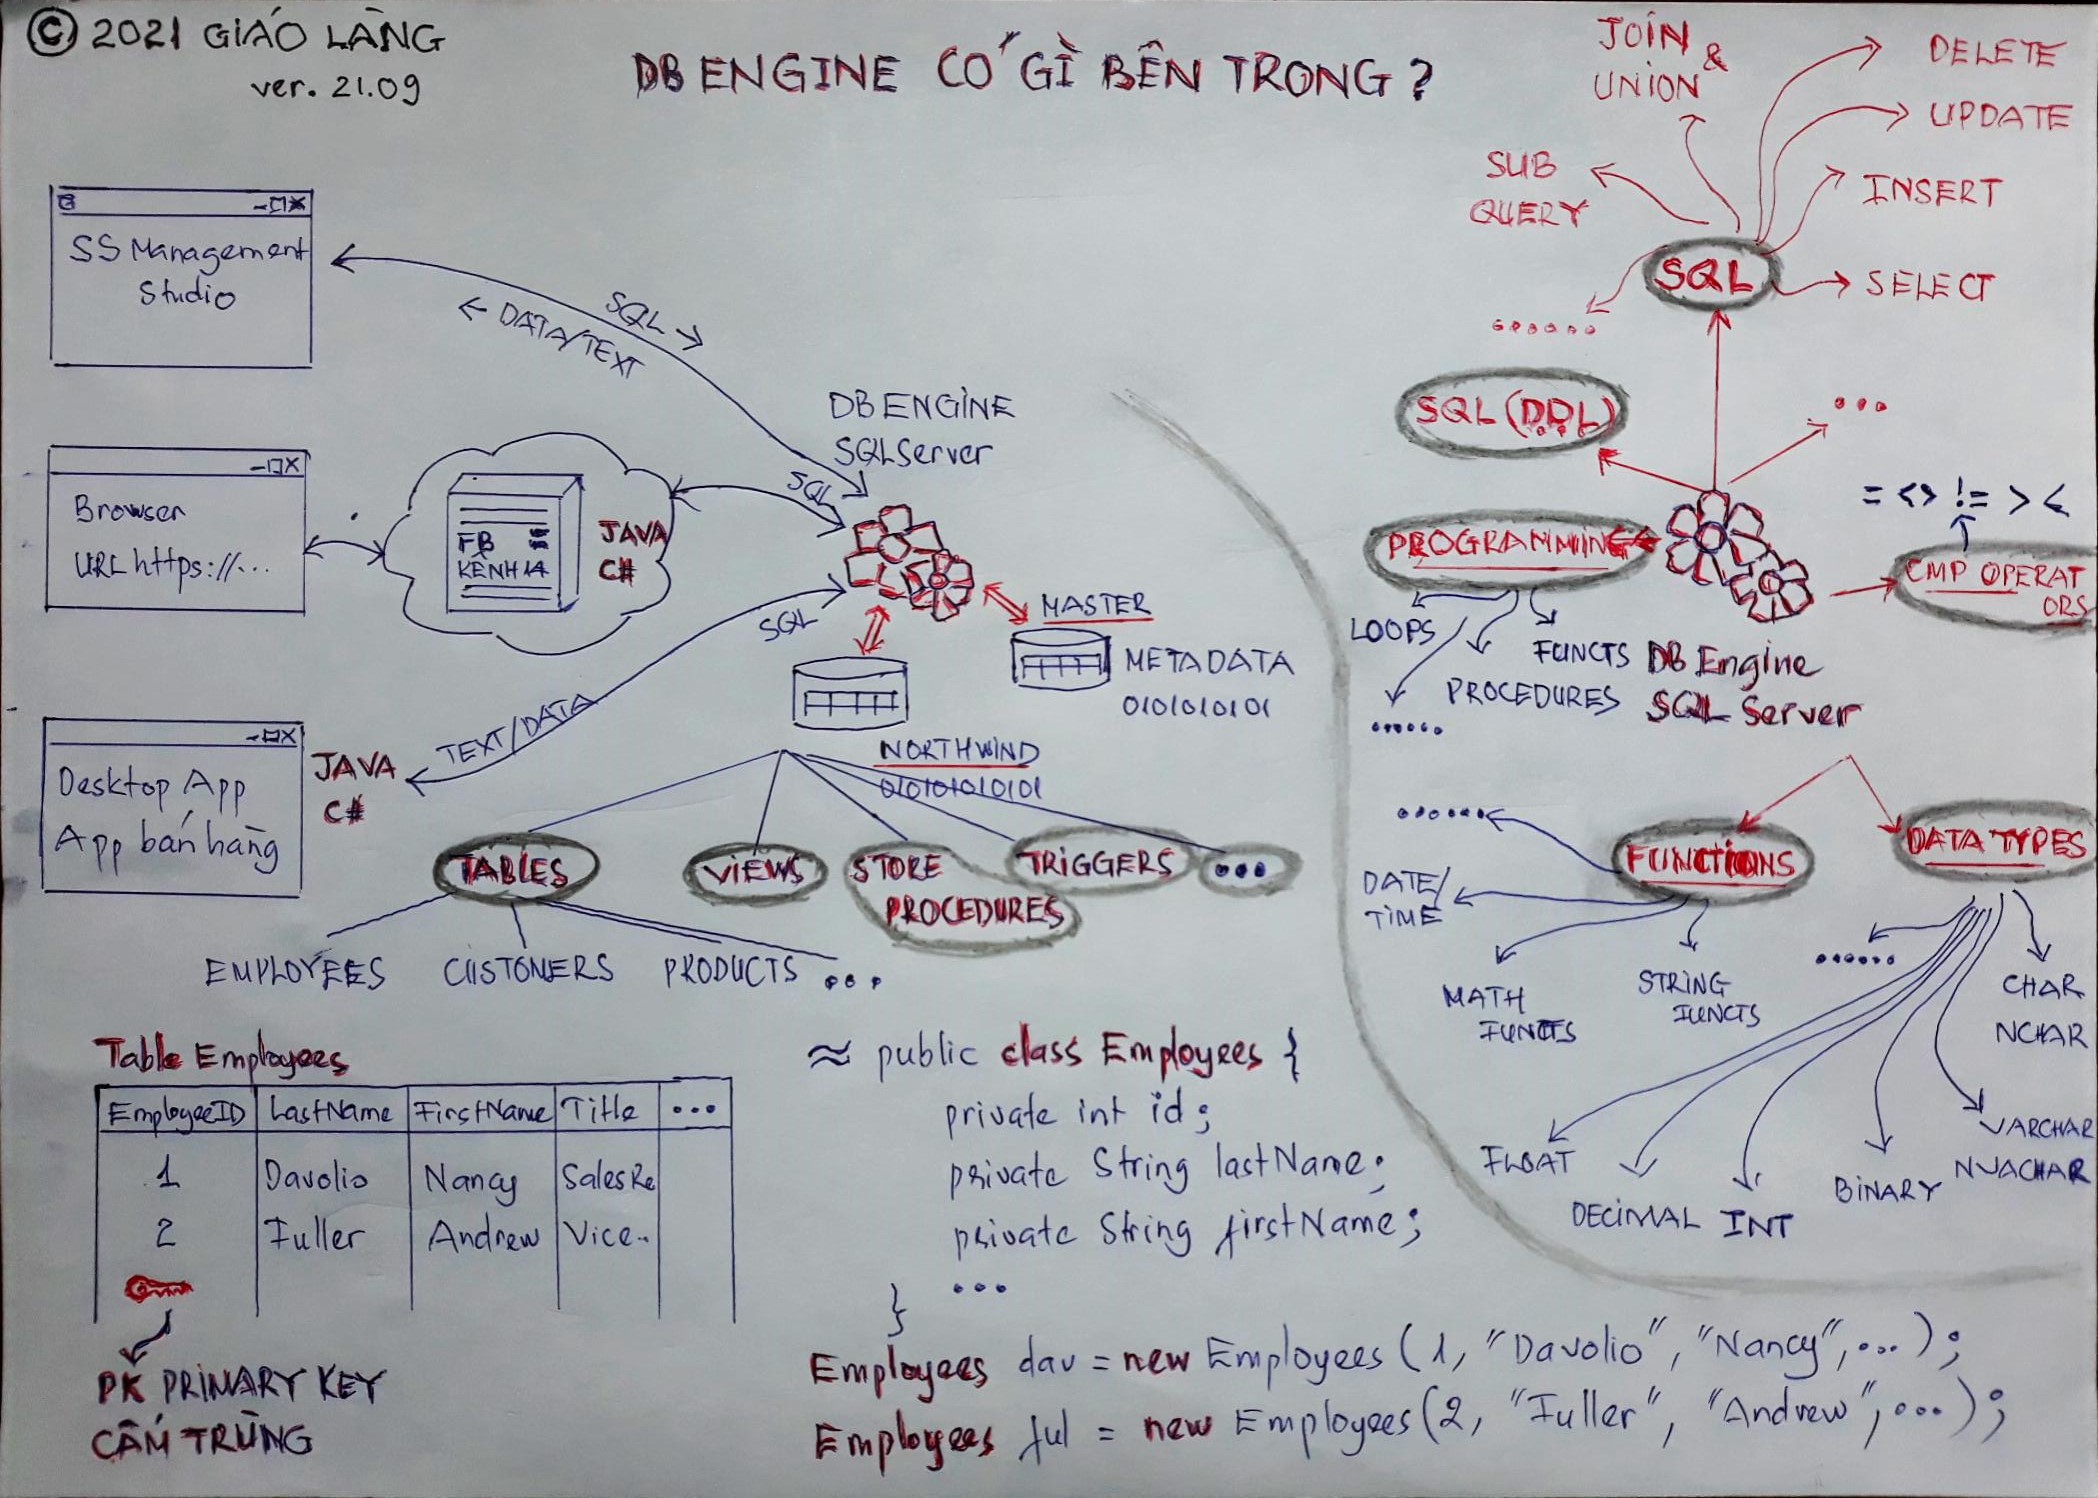 © 2021 GIÁO LÀNG
ver. 21.09
DB ENGINE CÓ GÌ BÊN TRONG ?
SS Management
Studio
SQL →
← DATA/TEXT
DB ENGINE
SQL Server
Browser
URL https://...
FB
KÊNH 14
JAVA
C#
SQL
SQL
TEXT/DATA
MASTER
METADATA
0101010101
Desktop App
App bán hàng
JAVA
C#
NORTHWIND
010101010101
TABLES
VIEWS
STORE
PROCEDURES
TRIGGERS
...
EMPLOYEES
CUSTOMERS
PRODUCTS ...
Table Employees
EmployeeID LastName FirstName Title ...
1 Davolio Nancy SalesRe
2 Fuller Andrew Vice..
PK PRIMARY KEY
CẤM TRÙNG
≈ public class Employees {
private int id;
private String lastName;
private String firstName;
...
}
Employees dav = new Employees (1, "Davolio", "Nancy", ...);
Employees ful = new Employees (2, "Fuller", "Andrew", ...);
JOIN &
UNION
DELETE
UPDATE
INSERT
SELECT
SUB
QUERY
SQL
......
SQL (DDL)
...
= <> != > <
PROGRAMMING
CMP OPERAT
ORS
LOOPS
FUNCTS
PROCEDURES
......
DB Engine
SQL Server
......
FUNCTIONS
DATA TYPES
DATE/
TIME
MATH
FUNCTS
STRING
FUNCTS
......
CHAR
NCHAR
VARCHAR
NVACHAR
BINARY
INT
DECIMAL
FLOAT